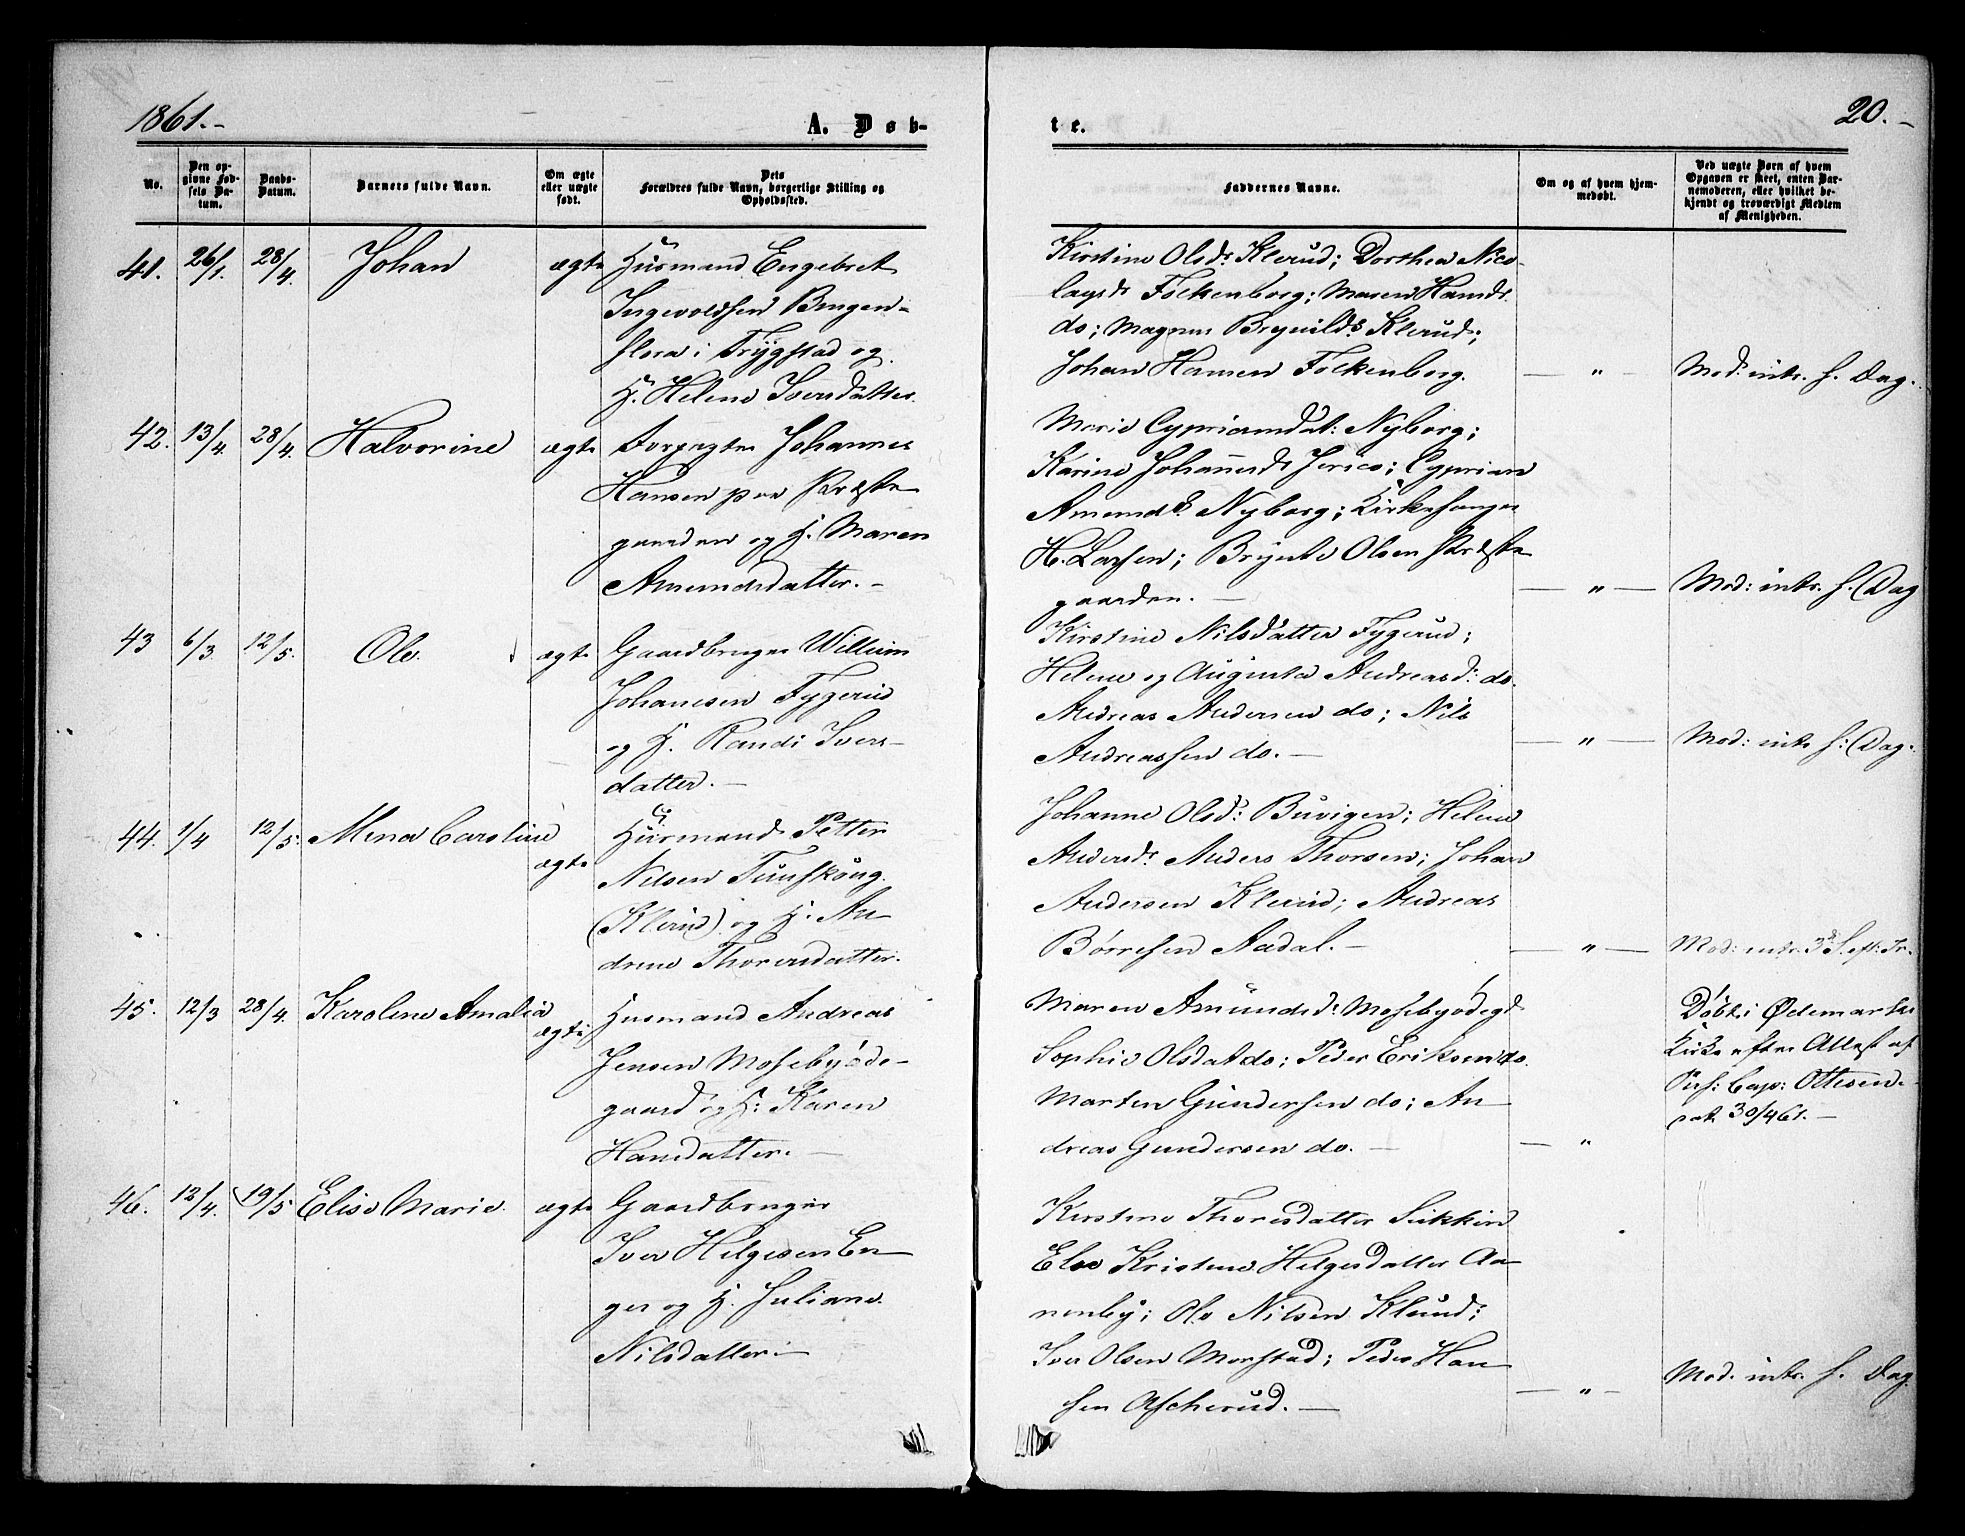 1861.-
A. Døb-
te.
20.-
No.
Den op-
givne Fød-
sels Da-
tum.
Daabs-
Datum.
Barnets fulde Navn.
Om ægte
eller uægte
født.
Dets
Forældres fulde Navn, borgerlige Stilling og
Opholdssted.
Faddernes Navne.
Om og af hvem hjem-
medøbt.
Ved uægte Barn af hvem
Opgaven er skeet, enten Bar-
nemoderen, eller hvilket be-
kjendt og troværdigt Medlem
af Menigheden.
41. 26/1. 28/4. Johan ægte Huusmand Engebret
Ingevoldsen Bergen-
i Trygstad og
H. Helene Iversdatter.
Kirstine Olsdr Klerud; Dorthea Nico-
laysdr Folkenborg; Maren Hansdr
do; Magnus Klerud;
Johan Hansen Folkenborg. — " — Mod: intr. s. Dag.
42. 13/4. 28/4. Halvorine ægte Forpagter Johannes
Hansen paa Præste
gaarden og H. Maren
Amundsdatter. -
Marie Nyborg;
Karine Johannesdr Jerico; Cyprian
Amunds. Nyborg; Kirkesanger
H. Larsen; Olsen Præste
gaarden. — — " — Mod: intr. s. Dag
43 6/3. 12/5. Ole. ægte Gaardbruger William
Johanesen Fygerud
og H. Randi Ivers-
datter. —
Kirstine Nilsdatter Fygerud;
Helene og Augusta Andreasd: do.
Andreas Andersen do; Nils
Andreassen do. — — " — Mod: intr s: Dag.
44. 1/4 12/5. Mina Caroline ægte Huusmand Petter
Nilsen
(Klerud) og H. An-
drene Thorersdatter.
Johanne Olsd: Buvigen; Helene
Andersdr. Anders Thorsen; Johan
Andersen Klerud; Andreas
Børresen Aadal. — — " — Mod: intr. 3d S. ef: Tr.
45. 12/3 28/4. Karoline Amalia ægte Husmand Andreas
Jensen Mosebyøde-
gaard og H: Karen
Hansdatter. —
Maren Amundsd: Mosebyødegd
Sophie Olsdat do; Peder Eriksen do.
Marten Gundersen do; An-
dreas Gundersen do. — — "
Døbt i Ødemarkes
Kirke efter Attest af
Cap: Ottesen.
dat. 30/4 61. —
46. 12/4. 19/5 Elise Marie. ægte Gaardbruger
Iver Helgesen En-
ger og H. Juliane
Nilsdatter: —
Kirstine Thoresdatter
Else Kristine Helgesdatter Aa-
nenby; Ole Nilsen Klerud;
Iver Olsen Morstad; Peder Han-
sen Ascherud. — — " — Mod. intr. s. Dag.